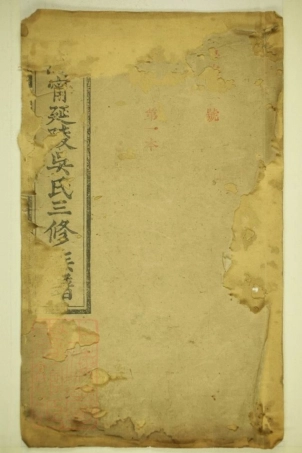 號
第一本
甯延陵吳氏三修